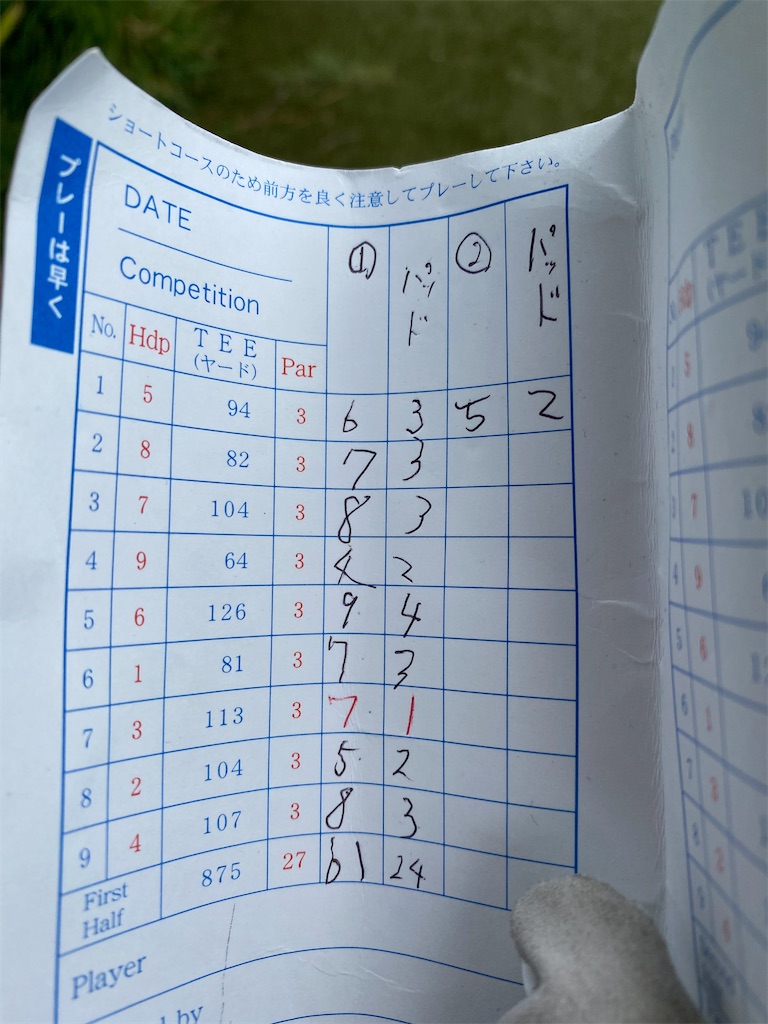 ショートコースのため前方を良く注意してプレーして下さい。
プレーは早く
DATE
Competition
① パッド ② パッド
No. Hdp TEE (ヤード) Par
1 5 94 3 6 3 5 2
2 8 82 3 7 3
3 7 104 3 8 3
4 9 64 3 4 2
5 6 126 3 9 4
6 1 81 3 7 3
7 3 113 3 7 1
8 2 104 3 5 2
9 4 107 3 8 3
First Half 875 27 61 24
Player
by